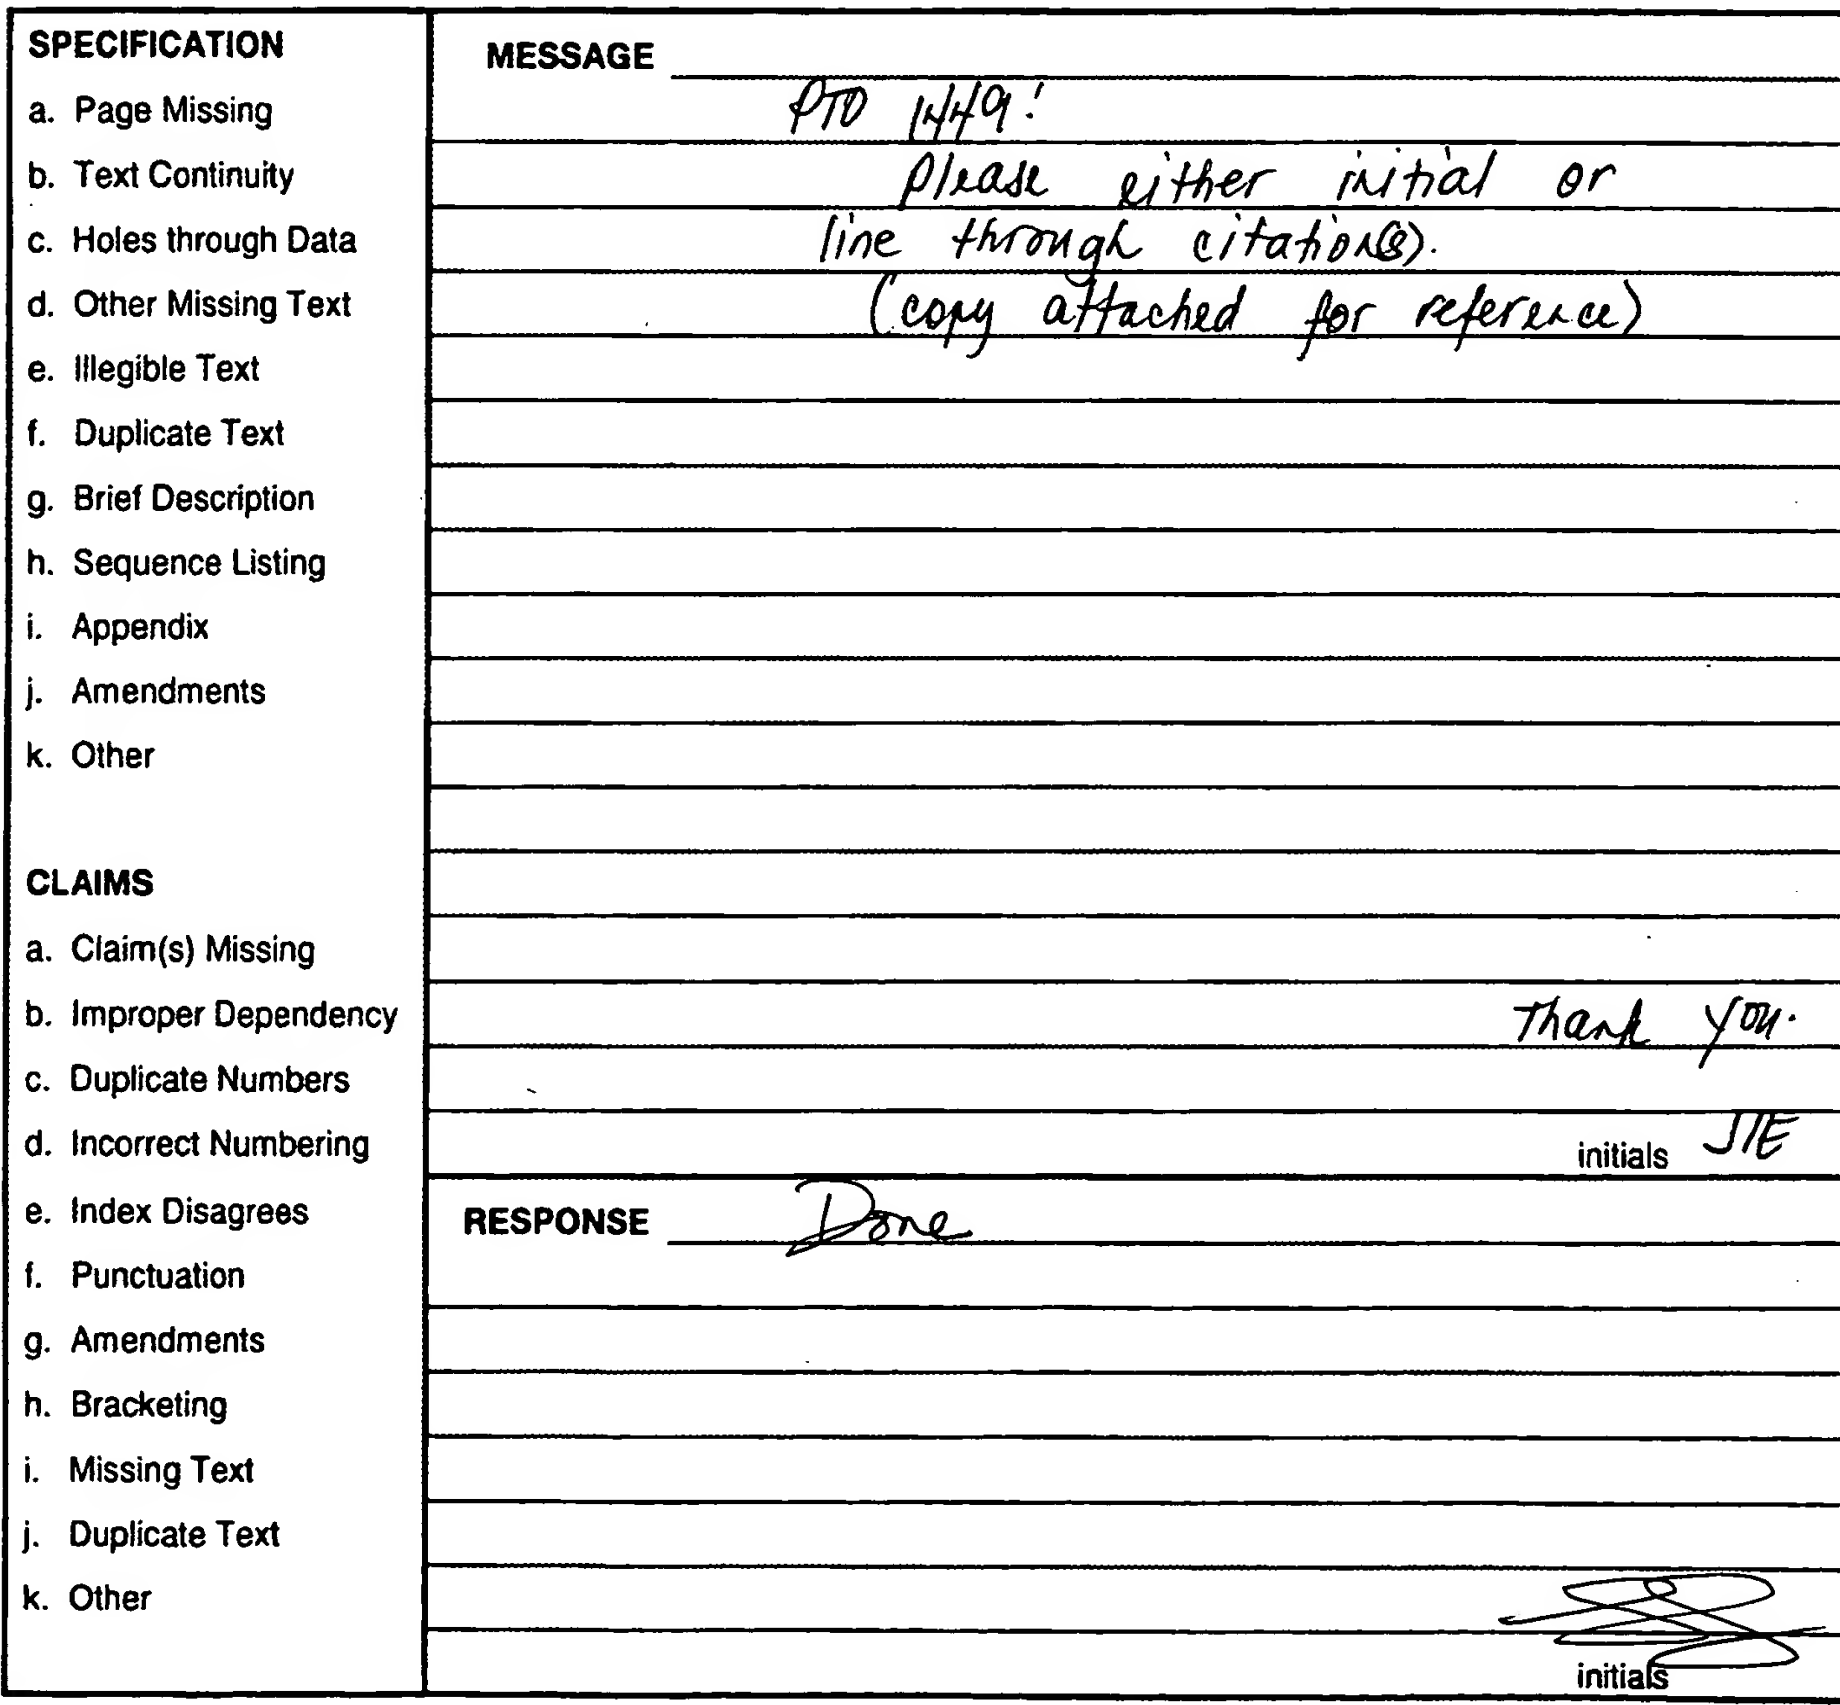 SPECIFICATION
a. Page Missing
b. Text Continuity
c. Holes through Data
d. Other Missing Text
e. Illegible Text
f. Duplicate Text
g. Brief Description
h. Sequence Listing
i. Appendix
j. Amendments
k. Other
CLAIMS
a. Claim(s) Missing
b. Improper Dependency
c. Duplicate Numbers
d. Incorrect Numbering
e. Index Disagrees
f. Punctuation
g. Amendments
h. Bracketing
i. Missing Text
j. Duplicate Text
k. Other
MESSAGE
PTO 1449:
Please either initial or
line through citation(s).
(copy attached for reference)
Thank you.
initials
RESPONSE Done
initials